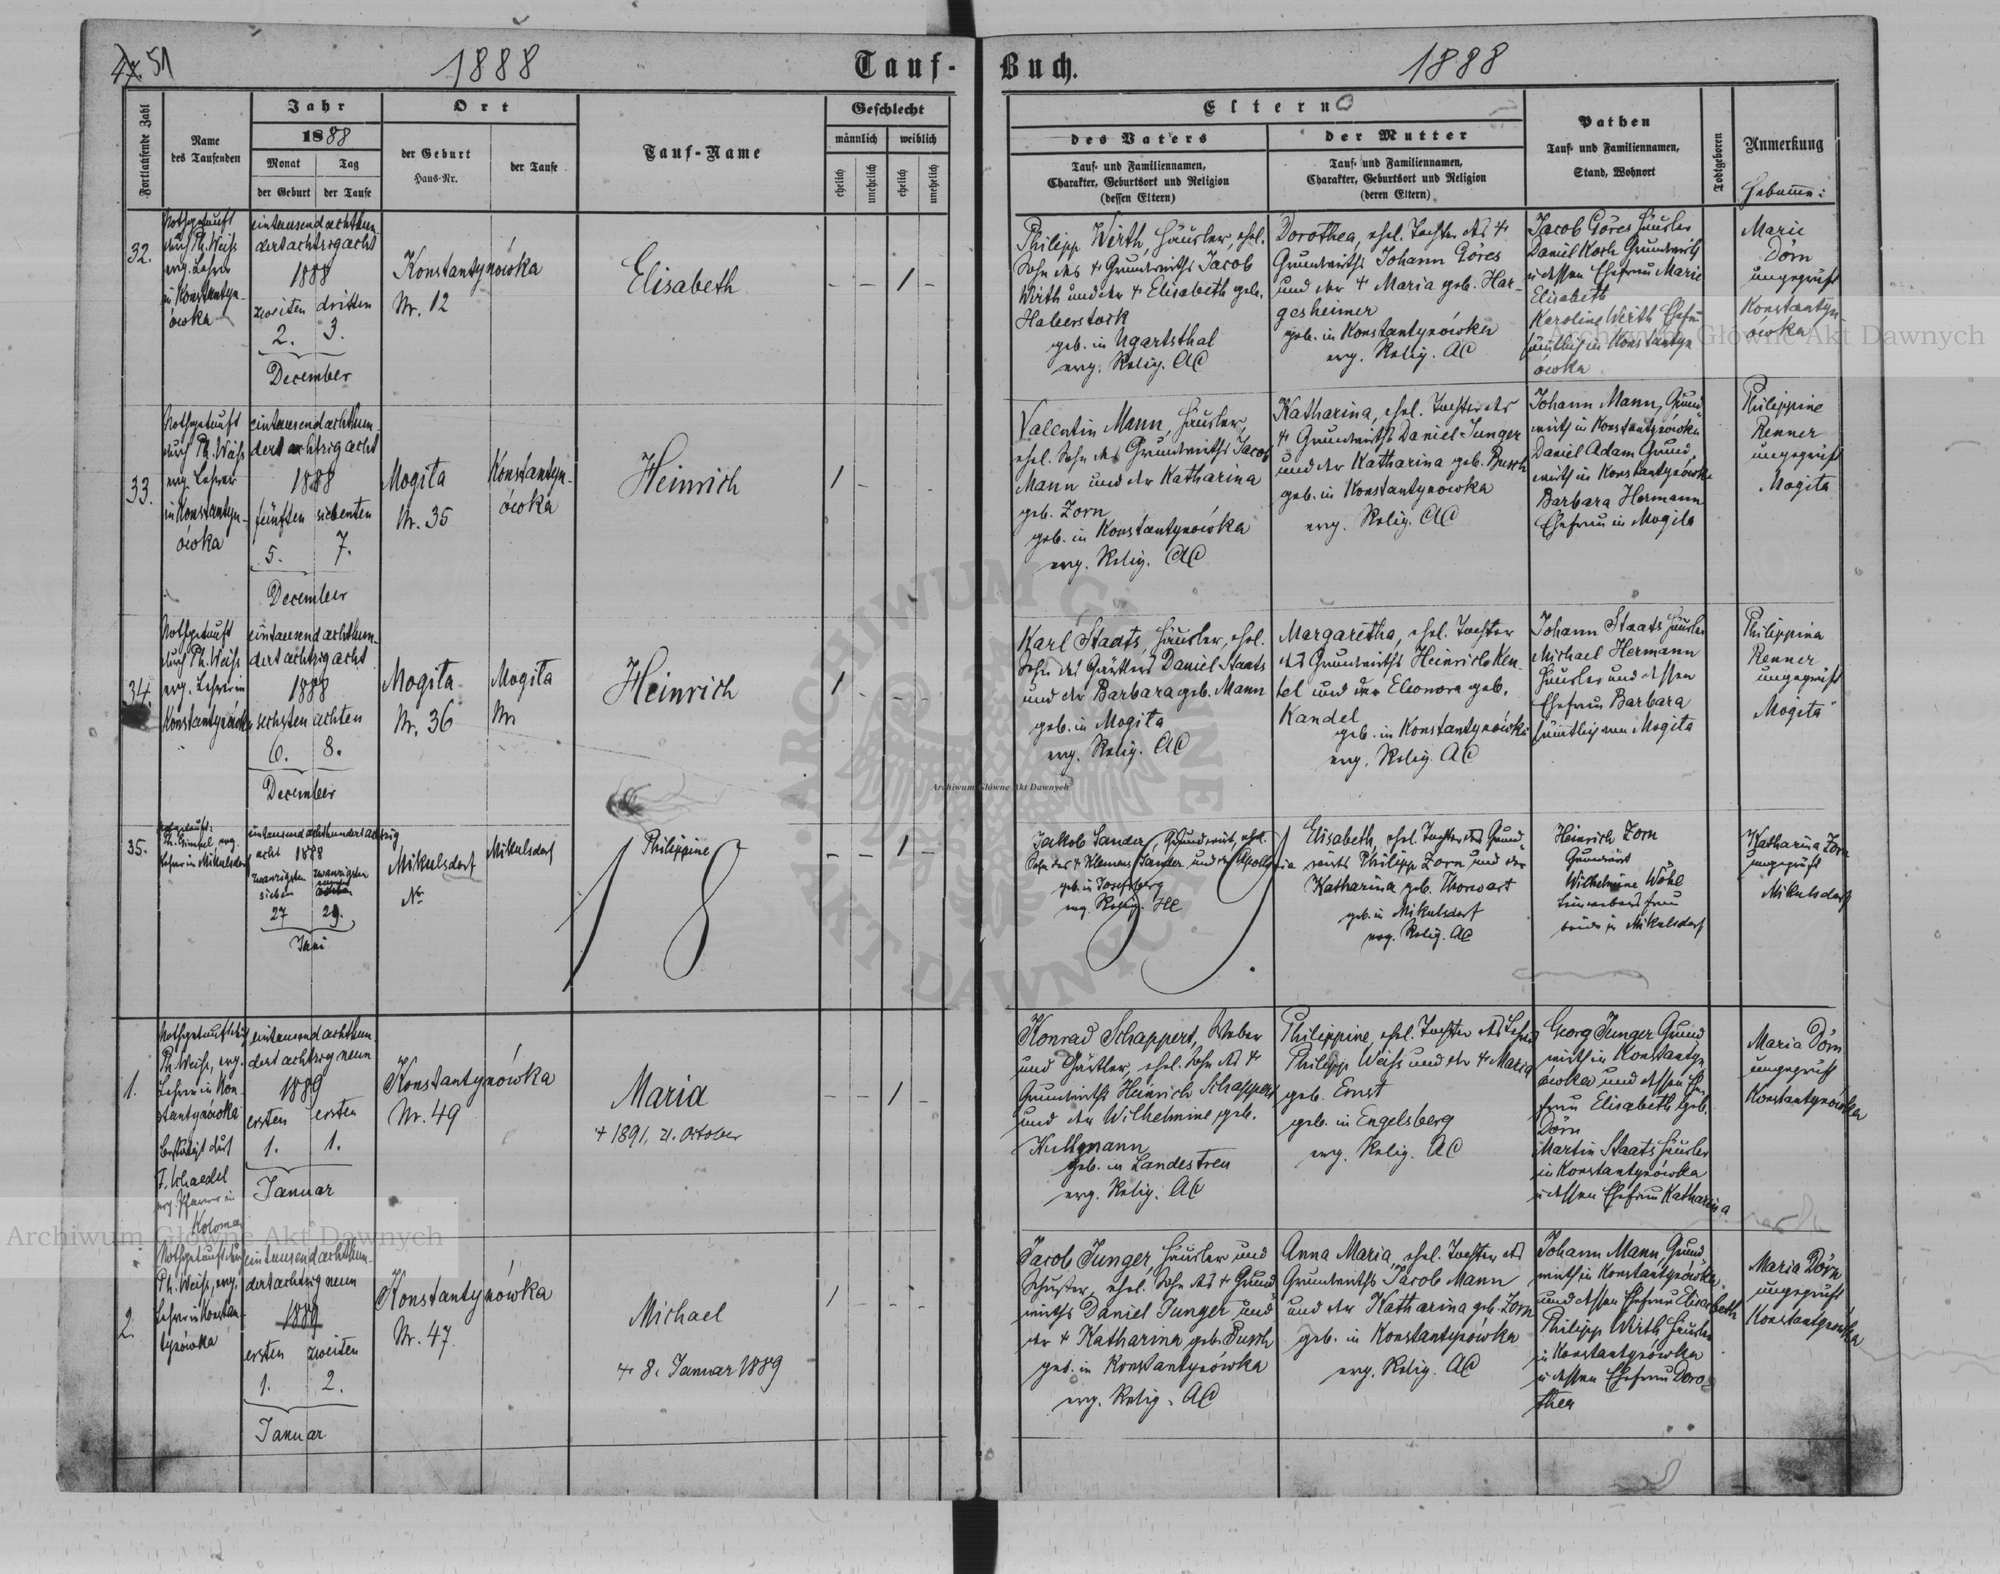 51
1888
Tauf-
Buch.
1888
Fortlaufende Zahl
Name
des Taufenden
Jahr
1888
Monat
Tag
der Geburt
der Taufe
Ort
der Geburt
Haus-Nr.
der Taufe
Tauf-Name
Geschlecht
männlich
weiblich
ehelich
unehelich
ehelich
unehelich
Eltern
des Vaters
Tauf- und Familiennamen,
Charakter, Geburtsort und Religion
(dessen Eltern)
der Mutter
Tauf- und Familiennamen,
Charakter, Geburtsort und Religion
(deren Eltern)
Pathen
Tauf- und Familiennamen,
Stand, Wohnort
Todtgeboren
Anmerkung
Hebamme:
32.
Nothgetauft
durch Ph. Weiss
evg. Lehrer
in Konstantyn-
ówka
eintausendachthun-
dertachtzigacht
1888
zweiten dritten
2. 3.
December
Konstantynówka
Nr. 12
Elisabeth
- - 1 -
Philipp Wirth, Häusler, ehel.
Sohn des + Grundwirths Jacob
Wirth und der + Elisabeth geb.
Haberstock
geb. in Ugartsthal
evg. Relig. AC
Dorothea, ehel. Tochter des +
Grundwirths Johann Göres
und der + Maria geb. Har-
gesheimer
geb. in Konstantynówka
evg. Relig. AC
Jacob Göres Häusler
Daniel Koch Grundwirth
u dessen Ehefrau Marie
Elisabeth
Karoline Wirth Ehefr
sämtlich in Konstantyn
ówka
Marie
Dörn
ungeprüft
Konstantyn-
ówka
33.
Nothgetauft
durch Ph. Weiss
evg. Lehrer
in Konstantyn-
ówka
eintausendachthun-
dert achtzigacht
1888
fünften siebenten
5. 7.
December
Mogiła
Nr. 35
Konstantyn-
ówka
Heinrich
1 - -
Valentin Mann, Häusler,
ehel. Sohn des Grundwirths Jacob
Mann und der Katharina
geb. Zorn
geb. in Konstantynówka
evg. Relig. AC
Katharina, ehel. Tochter des
+ Grundwirths Daniel Junger
und der Katharina geb. Busch
geb. in Konstantynówka
evg. Relig. AC
Johann Mann, Grund-
wirth in Konstantynówka
Daniel Adam Grund-
wirth in Konstantynówka
Barbara Hermann
Ehefrau in Mogiła
Philippine
Renner
ungeprüft
Mogiła
34.
Nothgetauft
durch Ph. Weiss
evg. Lehrer in
Konstantynówka
eintausendachthun-
dertachtzigacht
1888
sechsten achten
6. 8.
December
Mogiła
Nr. 36
Mogiła
Nr
Heinrich
1 - - -
Karl Staats, Häusler, ehel.
Sohn des Gärtlers Daniel Staats
und der Barbara geb. Mann
geb. in Mogiła
evg. Relig. AC
Margaretha, ehel. Tochter
des Grundwirths Heinrich Ken-
tel und der Eleonora geb.
Kandel
geb. in Konstantynówka
evg. Relig. AC
Johann Staats Häusler
Michael Hermann
Häusler und dessen
Ehefrau Barbara
sämtlich von Mogiła
Philippina
Renner
ungeprüft
Mogiła
35.
Ph. Gimpel, evg.
Lehrer in Mikulsdorf
eintausendachthundertachtzig
acht 1888
zwanzigsten zwanzigsten
sieben
27 29.
Juni
Mikulsdorf
Nr
Mikulsdorf
Philippine
- - 1 -
Jakob Sander, Grundwirt, ehel.
Sohn des + Klemens Sander und der Apollonia
geb. in Josefsberg
evg. Relig. HC
Elisabeth, ehel. Tochter des Grund-
wirts Philipp Zorn und der
Katharina geb. Thorwart
geb. in Mikulsdorf
evg. Relig. AC
Heinrich Zorn
Grundwirt
Wilhelmine Wöhl
beide in Mikulsdorf
Katharina Zorn
ungeprüft
Mikulsdorf
1889
1.
Nothgetauft durch
Ph. Weiss, evg.
Lehrer in Kon-
stantynówka
bestätigt durch
evg. Pfarrer in
Kolomea
eintausendachthun-
dertachtzigneun
1889
ersten ersten
1. 1.
Januar
Konstantynówka
Nr. 49
Maria
+ 1891, 21. October
- - 1 -
Konrad Schappert, Weber
und Gärtler, ehel. Sohn des +
Grundwirths Heinrich Schappert
und der Wilhelmine geb.
Kullmann
geb. in Landestreu
evg. Relig. AC
Philippine, ehel. Tochter des Lehrers
Philipp Weiss und der + Maria
geb. Ernst
geb. in Engelsberg
evg. Relig. AC
Georg Junger Grund
wirth in Konstantyn
ówka und dessen Ehe-
frau Elisabeth geb.
Dörn
Martin Staats Häusler
in Konstantynówka
u dessen Ehefrau Katharina
Maria Dörn
ungeprüft
Konstantynówka
2.
Nothgetauft durch
Ph. Weiss, evg.
Lehrer in Konstan-
tynówka
eintausendachthun-
dertachtzigneun
1889
ersten zweiten
1. 2.
Januar
Konstantynówka
Nr. 47
Michael
+ 8. Januar 1889
1 - - -
Jacob Junger, Häusler und
Schuster, ehel. Sohn des + Grund-
wirths Daniel Junger und
der + Katharina geb. Busch
geb. in Konstantynówka
evg. Relig. AC
Anna Maria, ehel. Tochter des
Grundwirths Jacob Mann
und der Katharina geb. Zorn
geb. in Konstantynówka
evg. Relig. AC
Johann Mann, Grund-
wirth in Konstantynówka
und dessen Ehefrau Elisabeth
Philipp Wirth Häusler
in Konstantynówka
u dessen Ehefrau Doro-
thea
Maria Dörn
ungeprüft
Konstantynówka
Archiwum Główne Akt Dawnych
Archiwum Główne Akt Dawnych
Archiwum Główne Akt Dawnych
ARCHIWUM GŁÓWNE AKT DAWNYCH